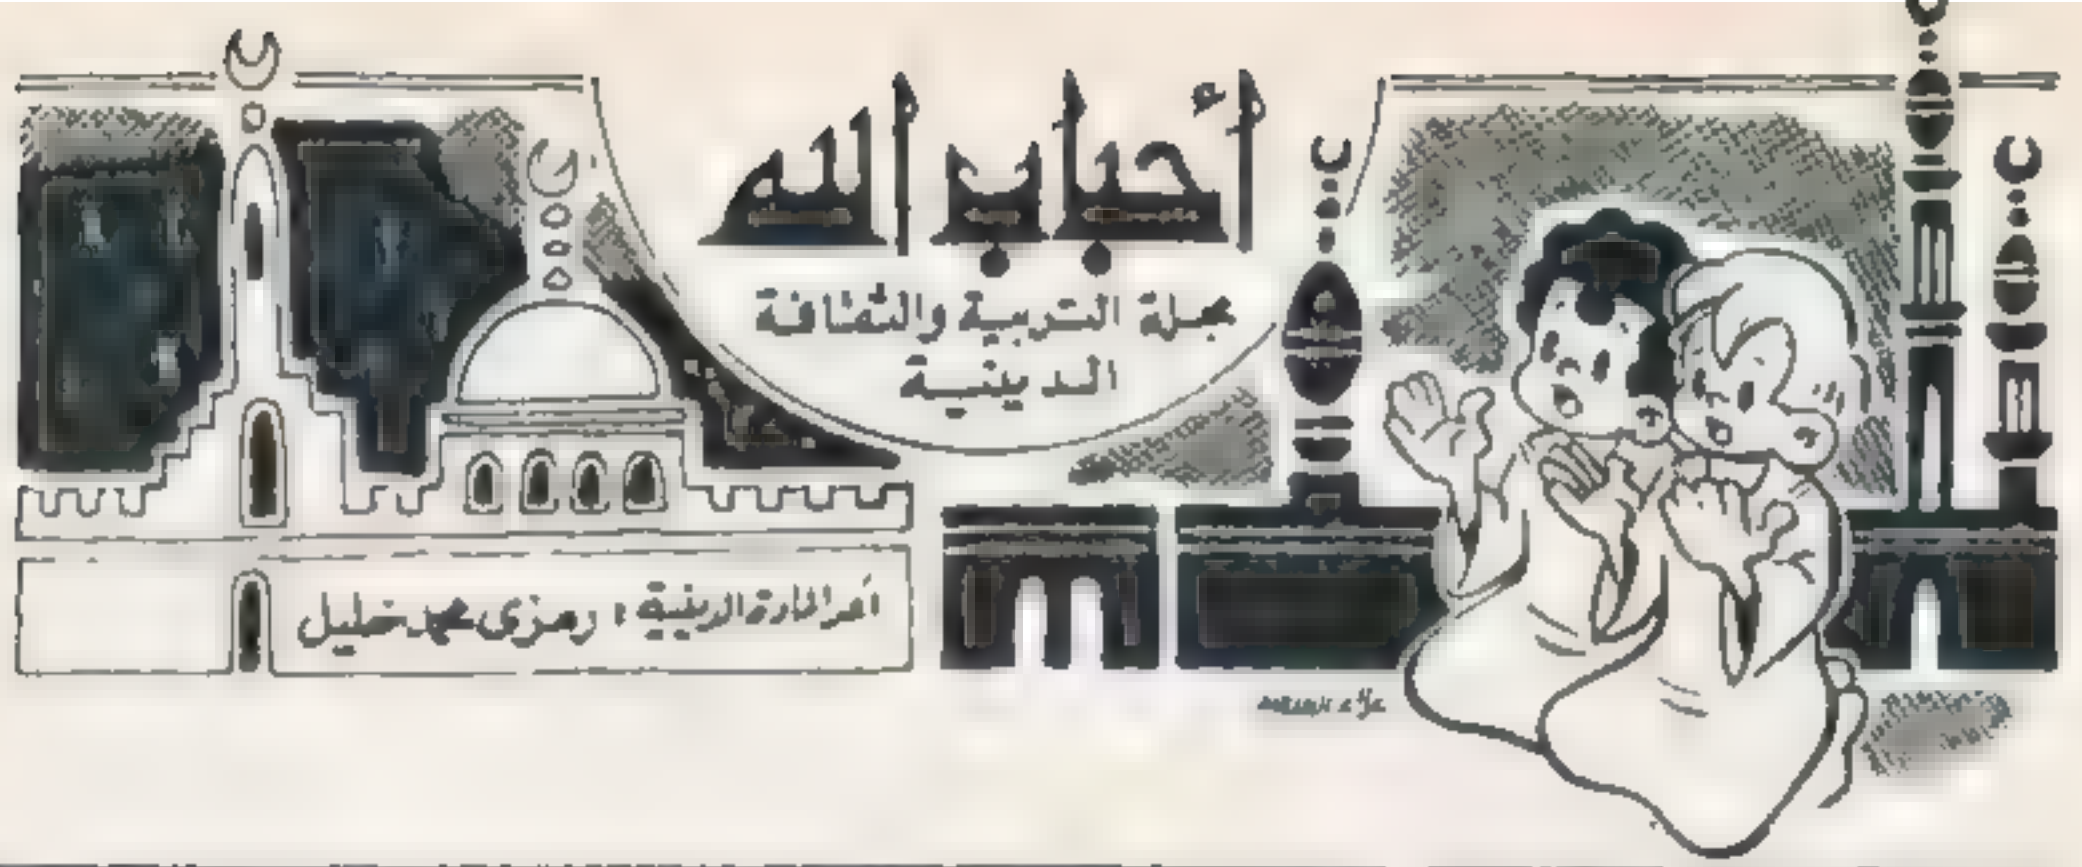 أحباب الله
مجلة التربية والثقافة
الدينية
أعد المادة الدينية : رمزى محمد خليل